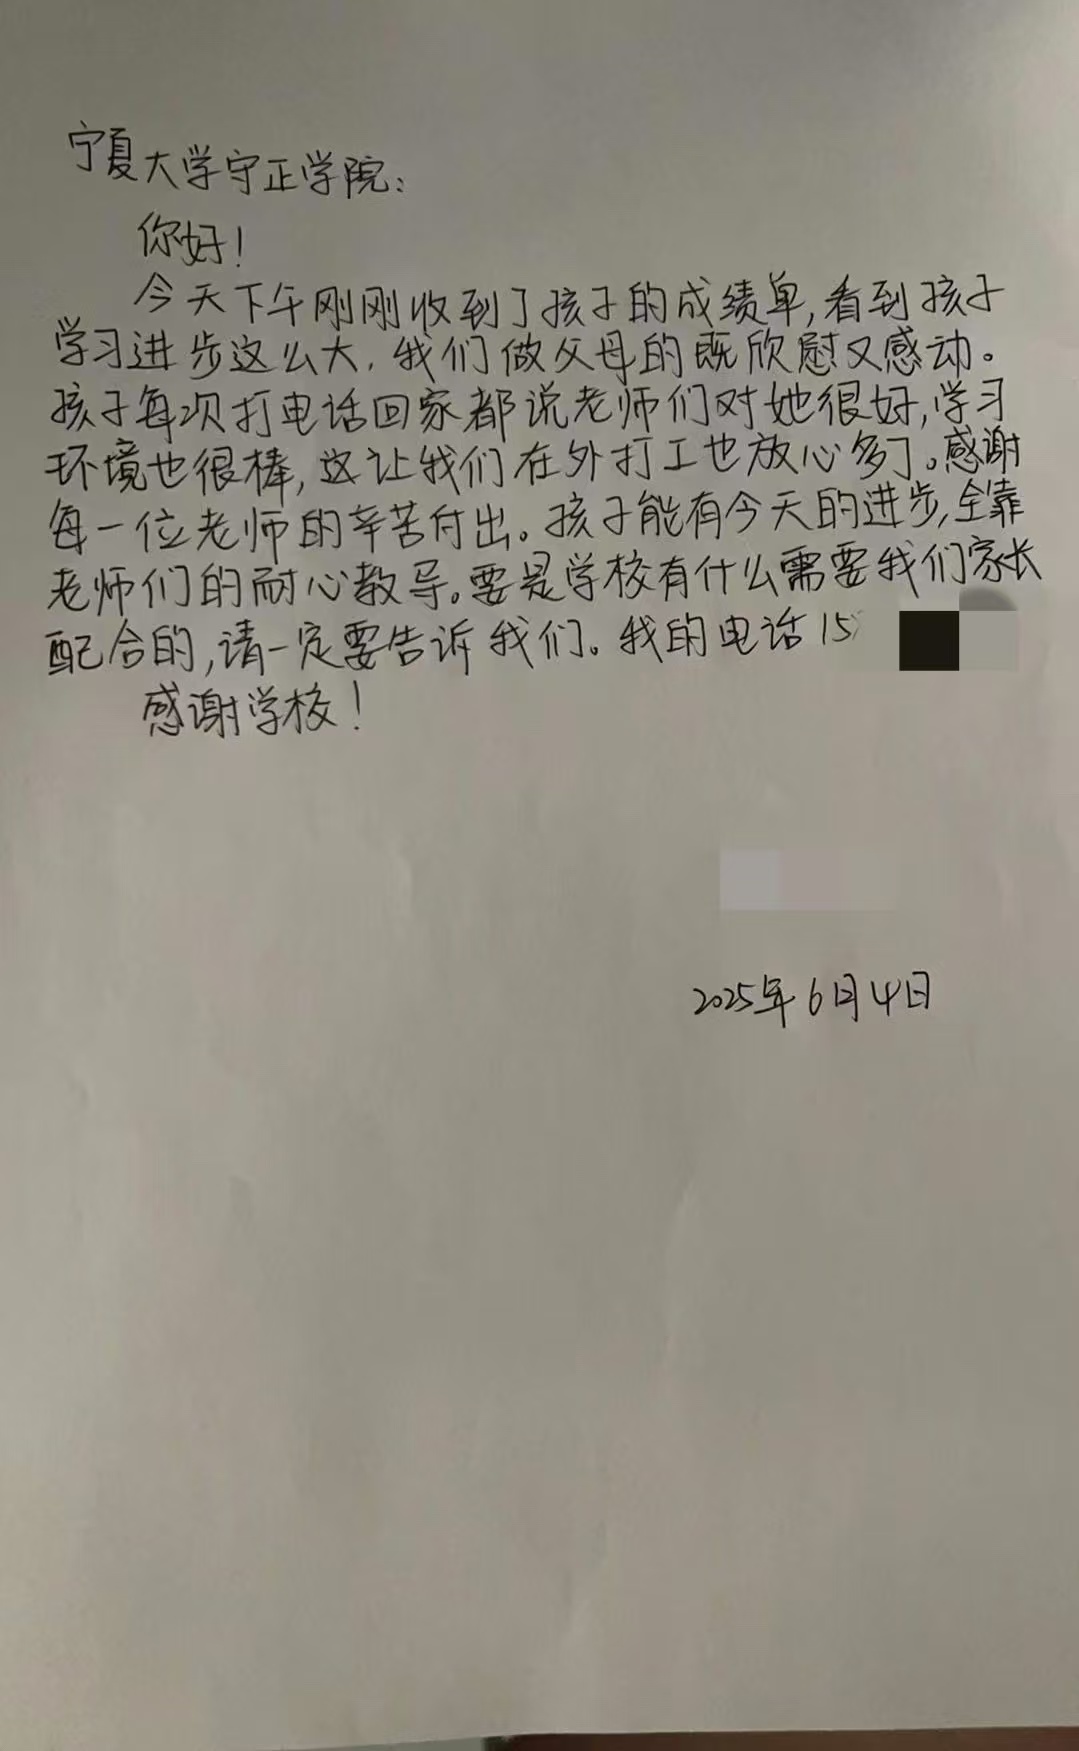 宁夏大学守正学院：
你好！
今天下午刚刚收到了孩子的成绩单，看到孩子
学习进步这么大，我们做父母的既欣慰又感动。
孩子每次打电话回家都说老师们对她很好，学习
环境也很棒，这让我们在外打工也放心多了。感谢
每一位老师的辛苦付出。孩子能有今天的进步，全靠
老师们的耐心教导。要是学校有什么需要我们家长
配合的，请一定要告诉我们。我的电话15
感谢学校！
2025年6月4日